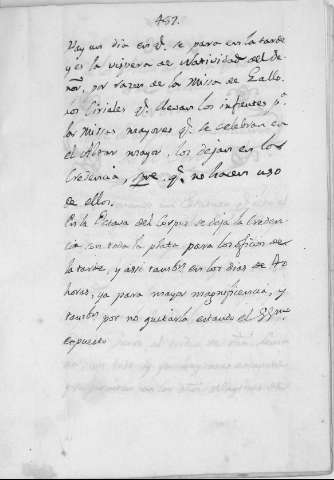 487.
Hay un dia en q.e se para en la tarde
y es la vispera de Natividad del Se-
ñor, por razon de la Missa de Gallo.
los Ciriales q.e llevan los infantes p.a
las Missas mayores q.e se celebran en
el Altar mayor, los dejan en los
Credencia, q.e no hacen uso
de ellos.
En la Octava del Corpus se deja la Creden-
cia con toda la plata para los oficios de
la tarde, y assi tambn en los dias de 40
horas, ya para mayor magnificencia, y
tambn por no quitarla estando el SSmo
expuesto